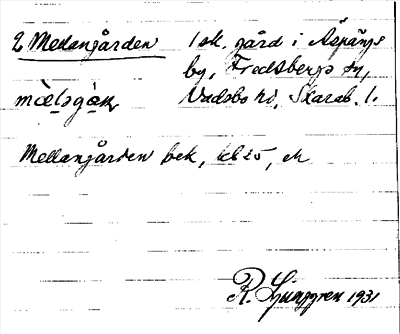 2 Mellangården 1 sk. gård i Äspängs
by, Fredsbergs sn,
Vadsbo hd, Skarab. l.
Mellangården bek,
R. Ljunggren 1931